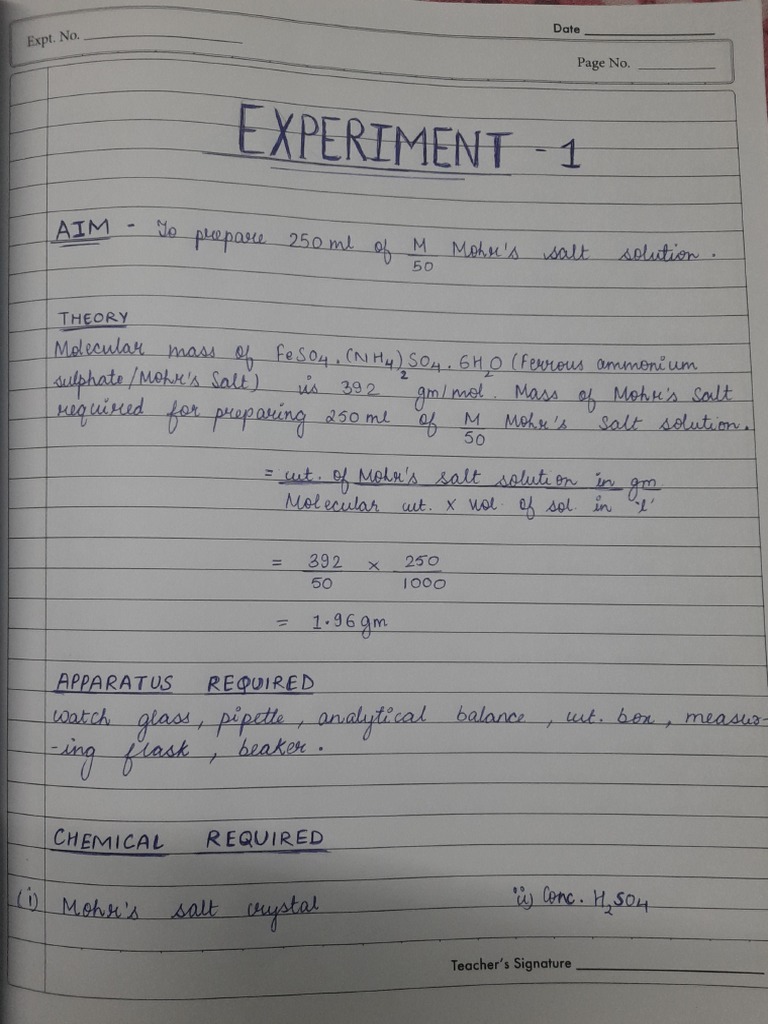 Expt. No.
Date
Page No.
EXPERIMENT - 1
AIM - To prepare 250 ml of M/50 Mohr's salt solution.
THEORY
Molecular mass of FeSO4.(NH4)2SO4.6H2O (Ferrous ammonium
sulphate/Mohr's Salt) is 392 gm/mol. Mass of Mohr's Salt
required for preparing 250 ml of M/50 Mohr's Salt solution.
= wt. of Mohr's salt solution in gm
Molecular wt. x vol. of sol. in 'l'
= 392/50 × 250/1000
= 1.96 gm
APPARATUS REQUIRED
watch glass, pipette, analytical balance, wt. box, measur-
-ing flask, beaker.
CHEMICAL REQUIRED
(i) Mohr's salt crystal ii) Conc. H2SO4
Teacher's Signature